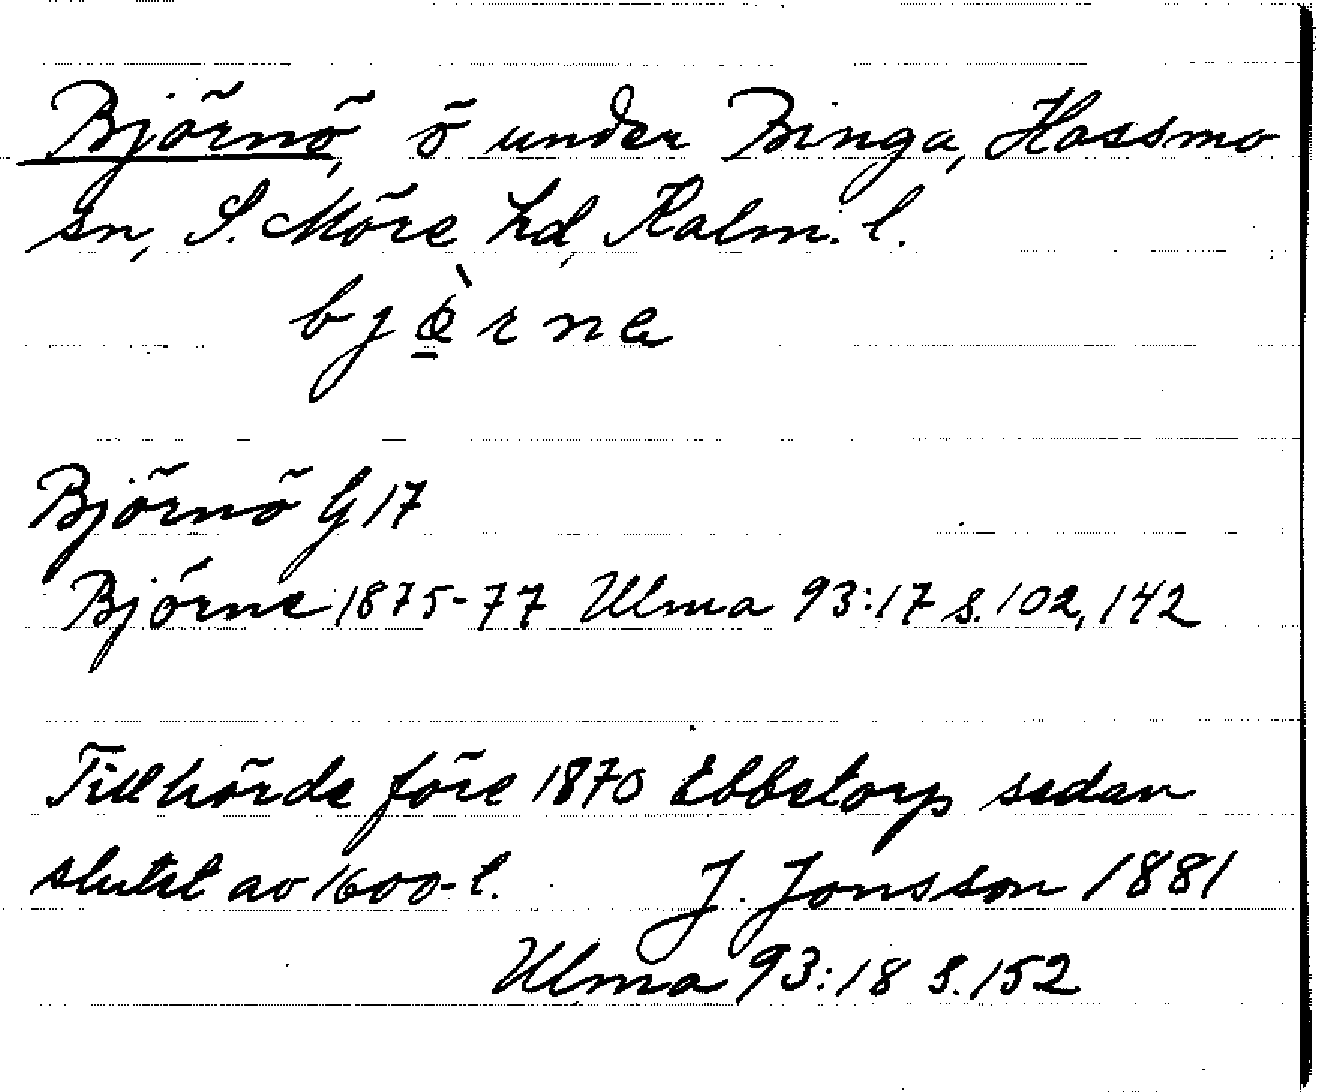 Björnö, ö under Binga, Hossmo
sn, S. Möre hd, Kalm. l.
bjø̱̀rne
Björnö G 17
Björne 1875-77 Ulma 93:17 s. 102, 142
Tillhörde före 1870 Ebbetorp sedan
slutet av 1600-t. J. Jonsson 1881
Ulma 93:18 s. 152